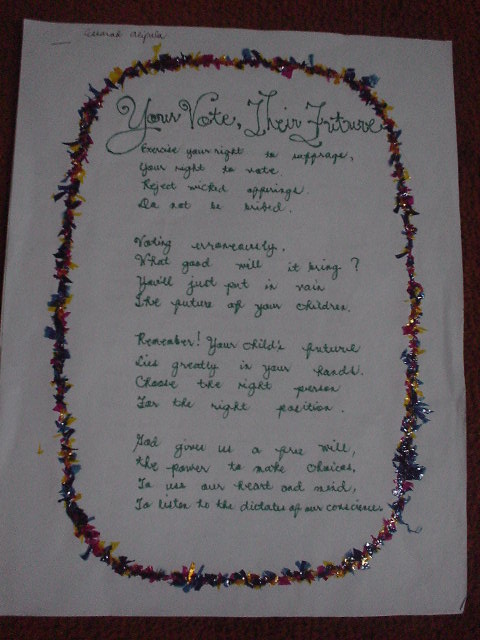 Your Vote, Their Future
Exercise your right to suffrage,
Your right to vote.
Reject wicked offerings.
Do not be bribed.
Voting erroneously,
What good will it bring?
You'll just put in vain
The future of your children.
Remember! Your child's future
Lies greatly in your hands.
Choose the right person
For the right position.
God gives us a free will,
the power to make choices,
To use our heart and mind,
To listen to the dictates of our conscience